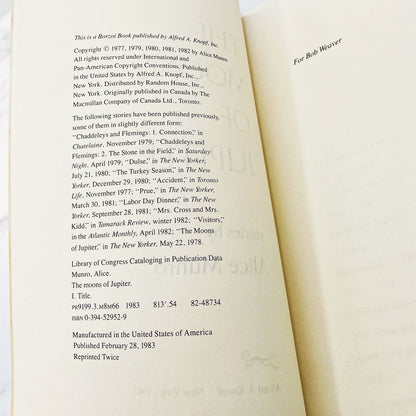 This is a Borzoi Book published by Alfred A. Knopf, Inc.
Copyright © 1977, 1979, 1980, 1981, 1982 by Alice Munro
All rights reserved under International and
Pan-American Copyright Conventions. Published
in the United States by Alfred A. Knopf, Inc., New
York. Distributed by Random House, Inc., New
York. Originally published in Canada by The
Macmillan Company of Canada Ltd., Toronto.
The following stories have been published previously,
some of them in slightly different form:
"Chaddeleys and Flemings: 1. Connection," in
Chatelaine, November 1979; "Chaddeleys and
Flemings: 2. The Stone in the Field," in Saturday
Night, April 1979; "Dulse," in The New Yorker,
July 21, 1980; "The Turkey Season," in The New
Yorker, December 29, 1980; "Accident," in Toronto
Life, November 1977; "Prue," in The New Yorker,
March 30, 1981; "Labor Day Dinner," in The New
Yorker, September 28, 1981; "Mrs. Cross and Mrs.
Kidd," in Tamarack Review, winter 1982; "Visitors,"
in the Atlantic Monthly, April 1982; "The Moons
of Jupiter," in The New Yorker, May 22, 1978.
Library of Congress Cataloging in Publication Data
Munro, Alice.
The moons of Jupiter.
I. Title.
PR9199.3.M8M66 1983 813'.54 82-48734
ISBN 0-394-52952-9
Manufactured in the United States of America
Published February 28, 1983
Reprinted Twice
For Bob Weaver